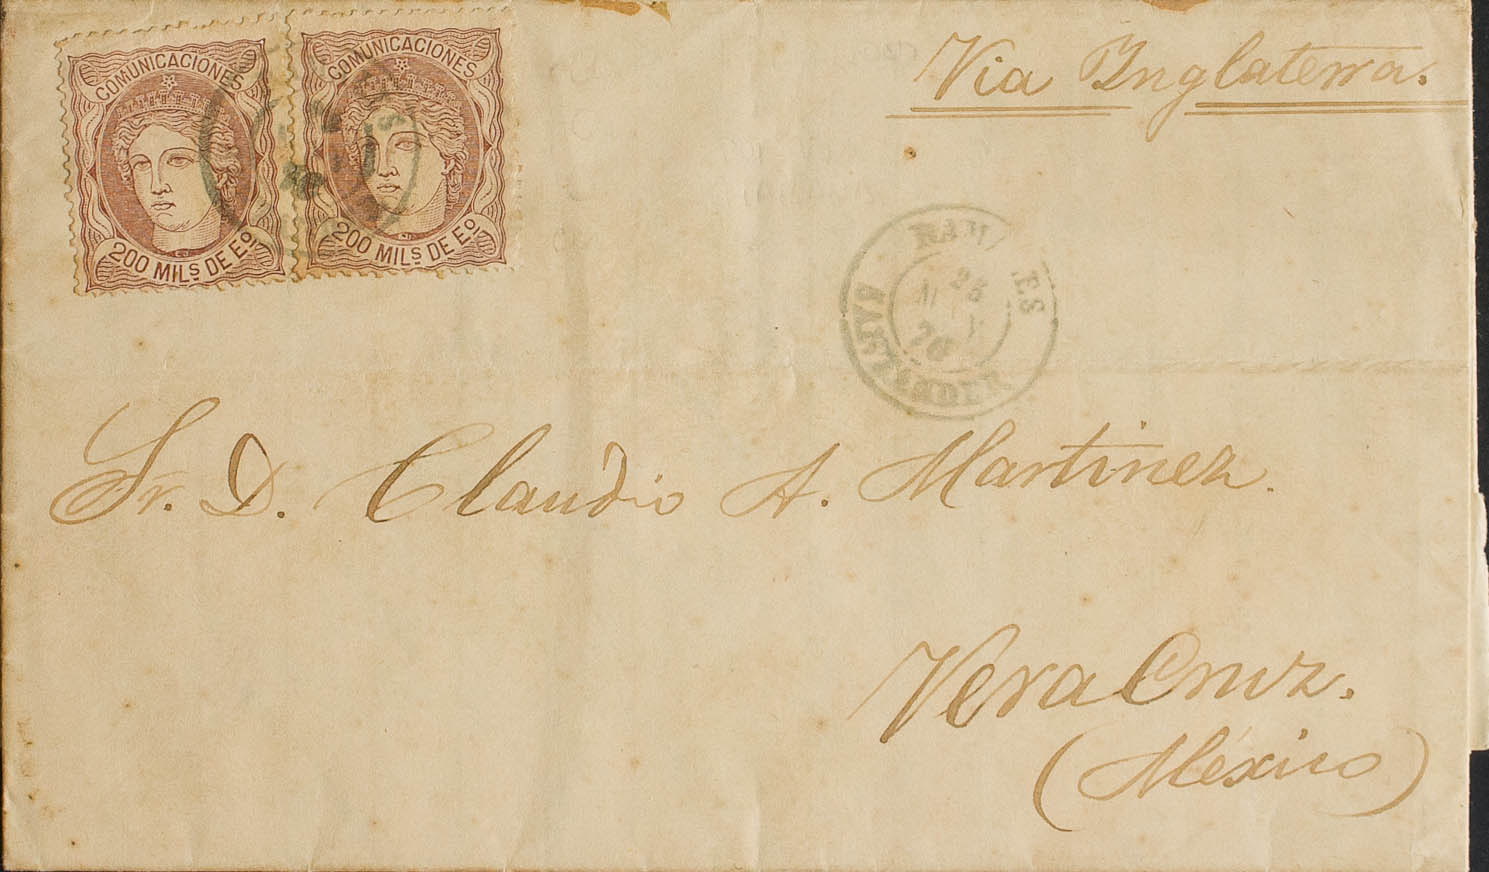 COMUNICACIONES
200 MILS DE Eo
COMUNICACIONES
200 MILS DE Eo
Via Inglaterra.
SANTANDER
Sr. D. Claudio A. Martinez.
Vera Cruz.
(México)